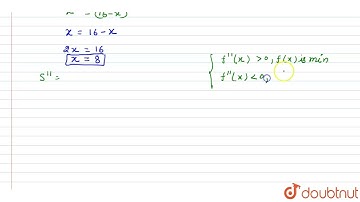 x = (16-x)
x = 16 - x
2x = 16
x = 8
S'' =
f''(x) > 0, f(x) is min
f''(x) < 0,
doubtnut